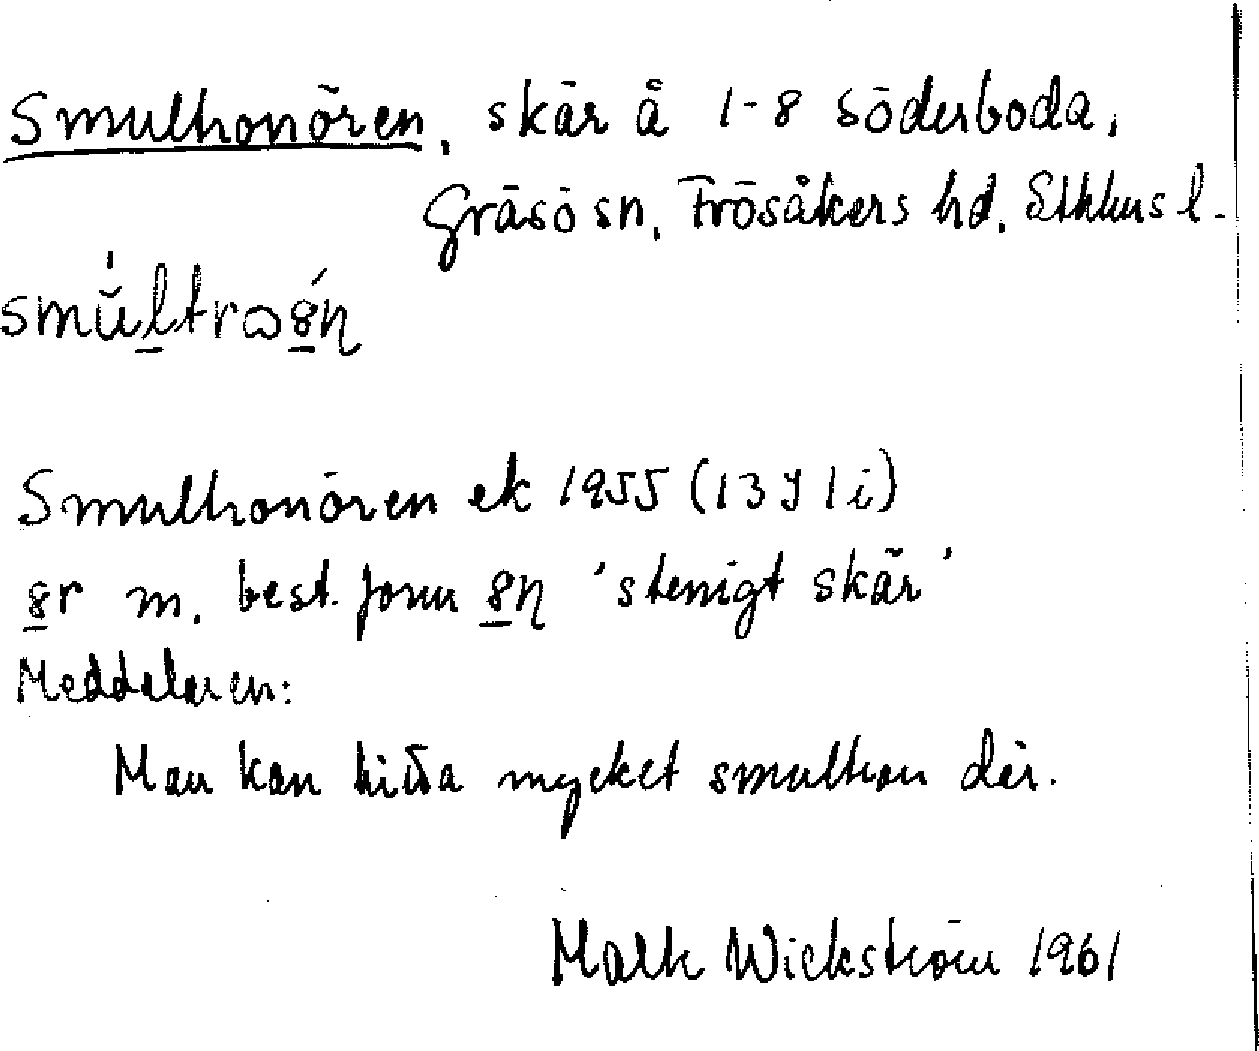 Smultronören, skär å 1-8 Söderboda,
Gräsö sn, Frösåkers hd, Sthlms l.
Smultronören ek 1955 (13 I 1 i)
m. best. form 'stenigt skär'
Meddelaren:
Man kan hitta mycket smultron där.
Wickström 1961